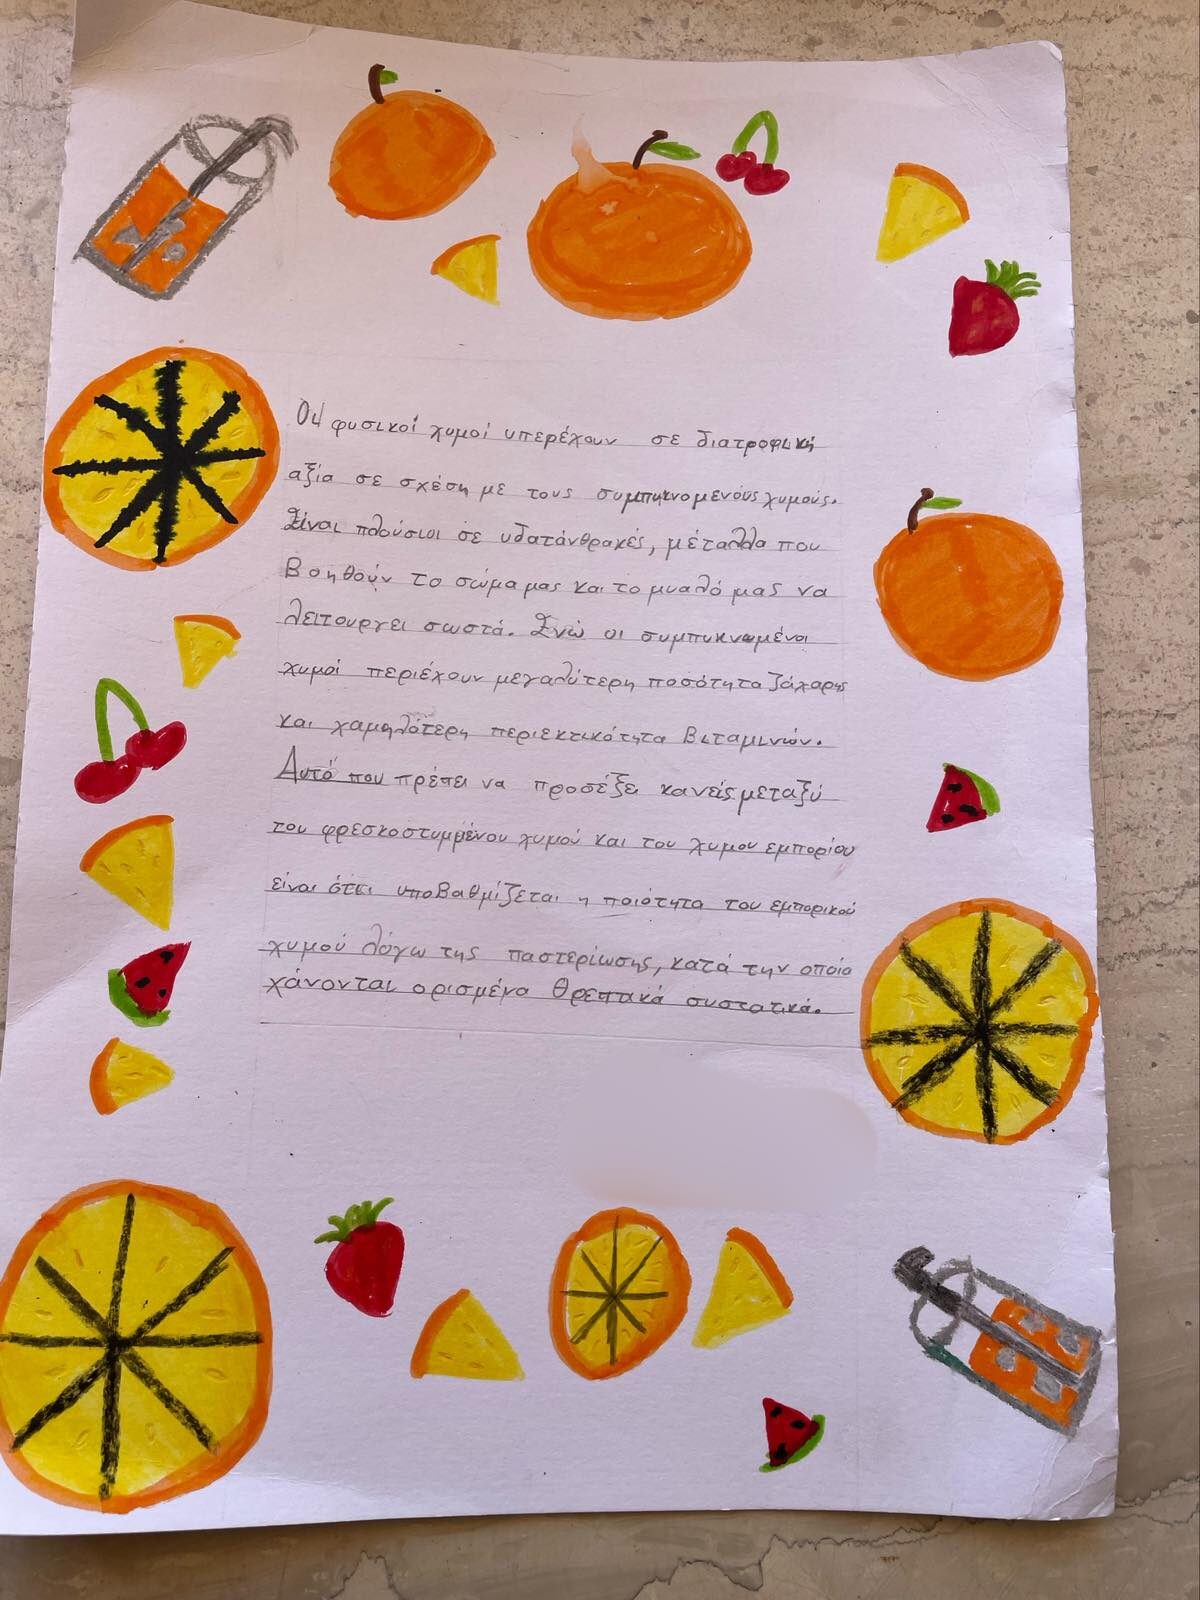 Οι φυσικοί χυμοί υπερέχουν σε διατροφική
αξία σε σχέση με τους συμπυκνομενους χυμούς.
Είναι πλούσιοι σε υδατάνθρακές, μέταλλα που
βοηθούν το σώμα μας και το μυαλό μας να
λειτουργεί σωστά. Ενώ οι συμπυκνωμένοι
χυμοί περιέχουν μεγαλύτερη ποσότητα ζάχαρης
και χαμηλότερη περιεκτικότητα βιταμινών.
Αυτό που πρέπει να προσέξει κανείς μεταξύ
του φρεσκοστυμμένου χυμού και του χυμου εμπορίου
είναι ότει υποβαθμίζεται η ποιότητα του εμπορικού
χυμού λόγω της παστερίωσης, κατά την οποία
χάνονται ορισμένα θρεπτικά συστατικά.